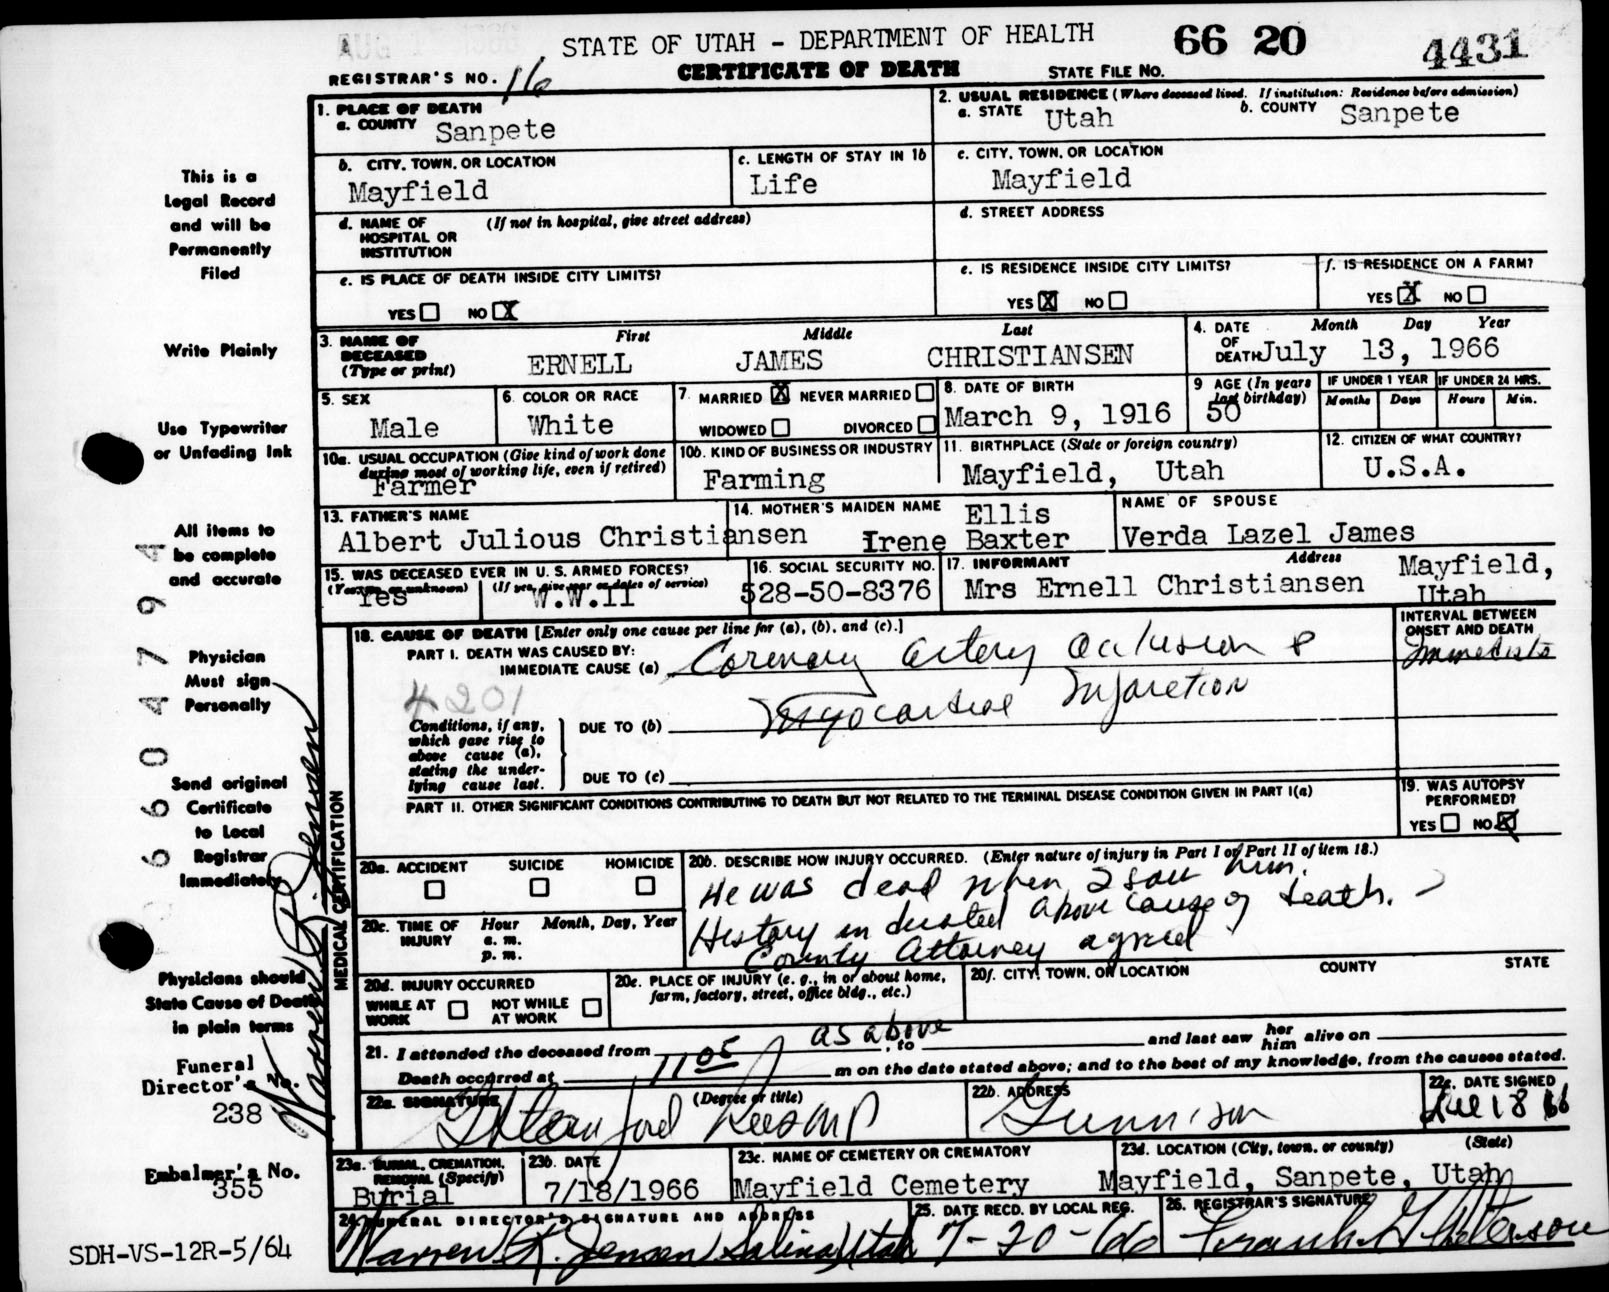 AUG 1 1966
STATE OF UTAH - DEPARTMENT OF HEALTH 66 20 4431
REGISTRAR'S NO. 116 CERTIFICATE OF DEATH STATE FILE NO.
1. PLACE OF DEATH
a. COUNTY Sanpete
2. USUAL RESIDENCE (Where deceased lived. If institution: Residence before admission)
a. STATE Utah b. COUNTY Sanpete
b. CITY, TOWN, OR LOCATION
Mayfield
c. LENGTH OF STAY IN 1b
Life
c. CITY, TOWN, OR LOCATION
Mayfield
d. NAME OF HOSPITAL OR INSTITUTION (If not in hospital, give street address)
d. STREET ADDRESS
e. IS PLACE OF DEATH INSIDE CITY LIMITS?
YES NO X
e. IS RESIDENCE INSIDE CITY LIMITS?
YES X NO
f. IS RESIDENCE ON A FARM?
YES X NO
3. NAME OF DECEASED (Type or print)
First Middle Last
ERNELL JAMES CHRISTIANSEN
4. DATE OF DEATH Month Day Year
July 13, 1966
5. SEX
Male
6. COLOR OR RACE
White
7. MARRIED X NEVER MARRIED
WIDOWED DIVORCED
8. DATE OF BIRTH
March 9, 1916
9 AGE (In years last birthday)
50
IF UNDER 1 YEAR IF UNDER 24 HRS.
Months Days Hours Min.
10a. USUAL OCCUPATION (Give kind of work done during most of working life, even if retired)
Farmer
10b. KIND OF BUSINESS OR INDUSTRY
Farming
11. BIRTHPLACE (State or foreign country)
Mayfield, Utah
12. CITIZEN OF WHAT COUNTRY?
U.S.A.
13. FATHER'S NAME
Albert Julious Christiansen
14. MOTHER'S MAIDEN NAME Ellis
Irene Baxter
NAME OF SPOUSE
Verda Lazel James
15. WAS DECEASED EVER IN U. S. ARMED FORCES?
(Yes, no, or unknown) (If yes, give war or dates of service)
Yes W.W.II
16. SOCIAL SECURITY NO.
528-50-8376
17. INFORMANT Address
Mrs Ernell Christiansen Mayfield, Utah
18. CAUSE OF DEATH [Enter only one cause per line for (a), (b), and (c).]
PART I. DEATH WAS CAUSED BY:
IMMEDIATE CAUSE (a) Coronary artery occlusion &
4201
Myocardial Infarction
Conditions, if any, which gave rise to above cause (a), stating the underlying cause last.
DUE TO (b)
DUE TO (c)
INTERVAL BETWEEN ONSET AND DEATH
Immediate
PART II. OTHER SIGNIFICANT CONDITIONS CONTRIBUTING TO DEATH BUT NOT RELATED TO THE TERMINAL DISEASE CONDITION GIVEN IN PART I(a)
19. WAS AUTOPSY PERFORMED?
YES NO X
20a. ACCIDENT SUICIDE HOMICIDE
20b. DESCRIBE HOW INJURY OCCURRED. (Enter nature of injury in Part I or Part II of item 18.)
He was dead when I saw him.
History indicated above cause of death.
County Attorney agreed
20c. TIME OF INJURY Hour Month, Day, Year
a. m.
p. m.
20d. INJURY OCCURRED
WHILE AT WORK NOT WHILE AT WORK
20e. PLACE OF INJURY (e. g., in or about home, farm, factory, street, office bldg., etc.)
20f. CITY, TOWN, OR LOCATION COUNTY STATE
21. I attended the deceased from as above, to and last saw her him alive on
Death occurred at 11 05 m on the date stated above; and to the best of my knowledge, from the causes stated.
22a. SIGNATURE (Degree or title)
Stanford Rees MD
22b. ADDRESS
Gunnison
22c. DATE SIGNED
Jul 18 66
23a. BURIAL, CREMATION, REMOVAL (Specify)
Burial
23b. DATE
7/18/1966
23c. NAME OF CEMETERY OR CREMATORY
Mayfield Cemetery
23d. LOCATION (City, town, or county) (State)
Mayfield, Sanpete, Utah
24. FUNERAL DIRECTOR'S SIGNATURE AND ADDRESS
Warren R. Jensen Salina, Utah
25. DATE RECD. BY LOCAL REG.
7-20-66
26. REGISTRAR'S SIGNATURE
Frank G. Peterson
This is a
Legal Record
and will be
Permanently
Filed
Write Plainly
Use Typewriter
or Unfading Ink
All items to
be complete
and accurate
Physician
Must sign
Personally
Send original
Certificate
to Local
Registrar
Immediately
Physicians should
State Cause of Death
in plain terms
Funeral
Director's No.
238
Embalmer's No.
355
SDH-VS-12R-5/64
660 4794
MEDICAL CERTIFICATION
Warren R. Jensen